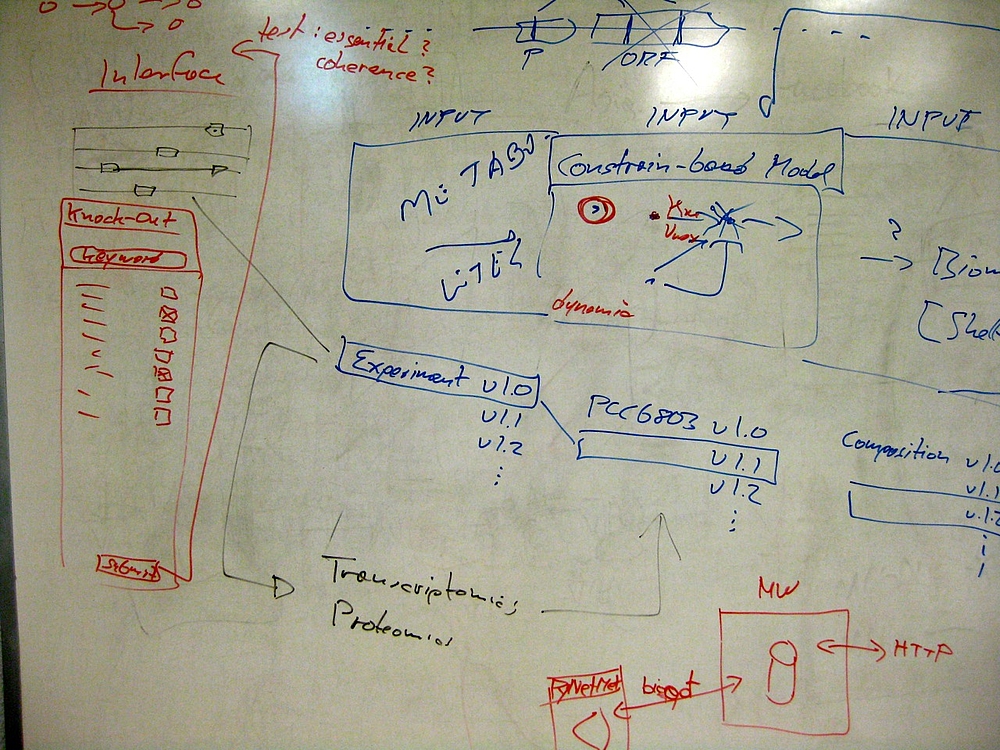 test: essential?
coherence?
Interface
P
ORF
INPUT
INPUT
INPUT
Constrain-based Model
Vmax
dynamic
?
Knock-Out
Keyword
Submit
Experiment v1.0
v1.1
v1.2
PCC6803 v1.0
v1.1
v1.2
Composition v1.0
v1.1
v1.2
Transcriptomics
Proteomics
MW
HTTP
PyNetMet